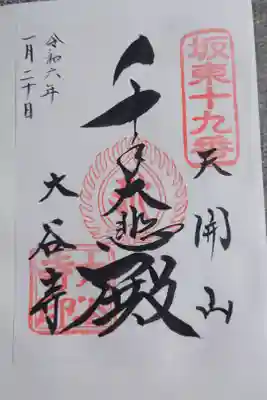 坂東十九番
天開山
千手大悲殿
大谷寺
令和六年
一月二十日